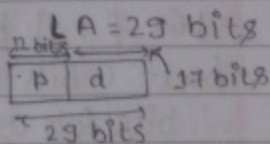 LA = 29 bits
12 bits
p d 17 bits
29 bits